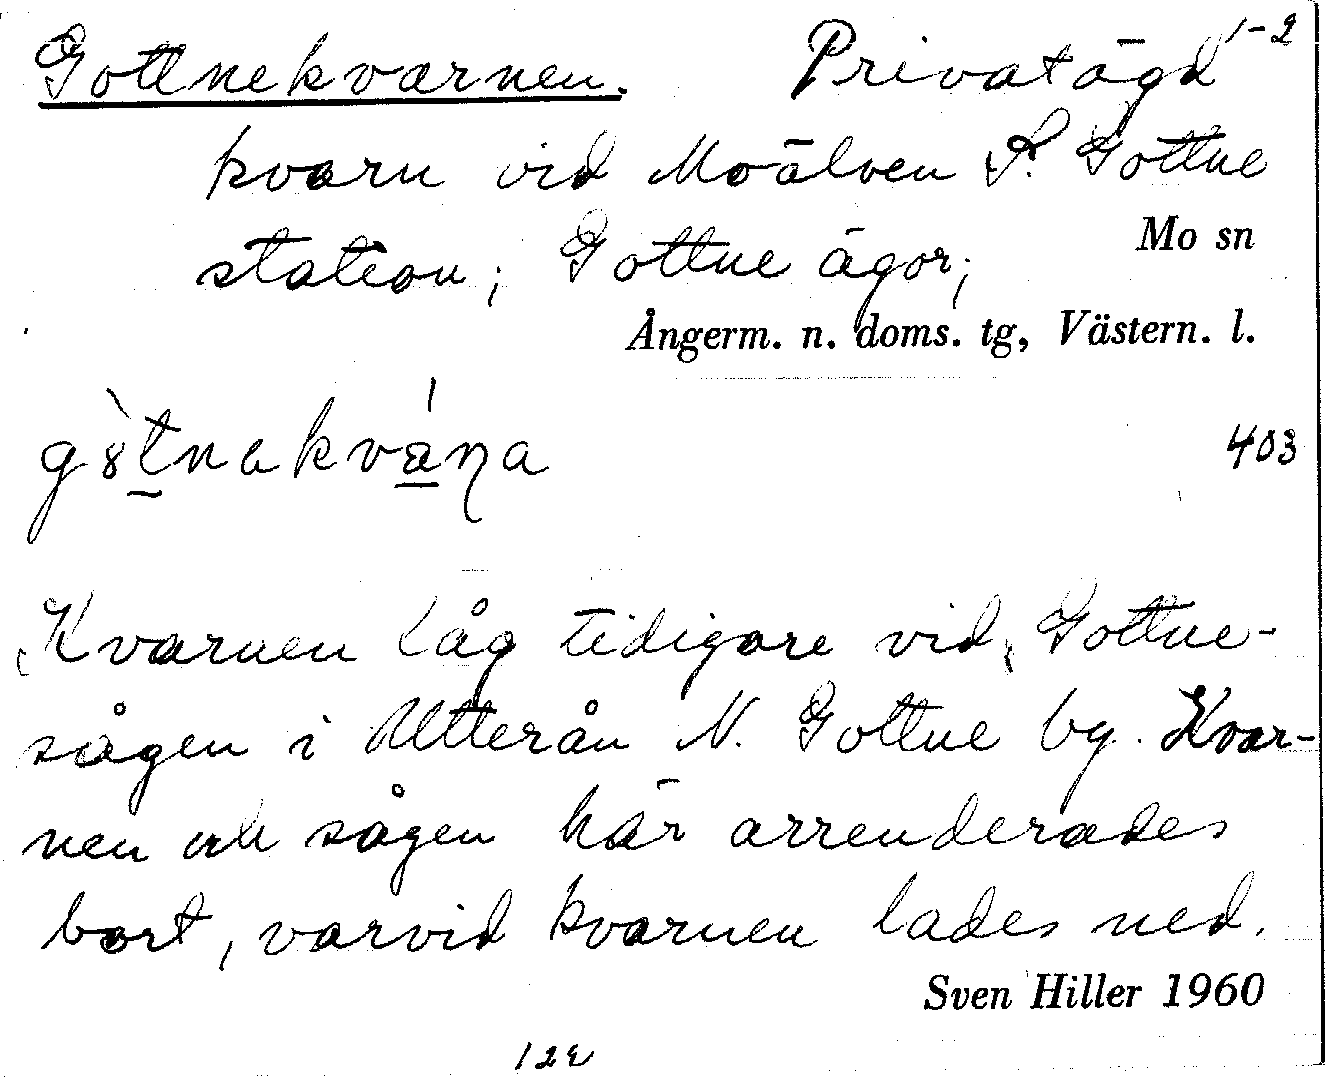 Gottnekvarnen. Privatägd 1-2
kvarn vid Moälven S. Gottne
Mo sn
station; Gottne ägor;
Ångerm. n. doms. tg, Västern. l.
403
Kvarnen låg tidigare vid Gottne-
sågen i Utterån N. Gottne by. Kvar-
nen och sågen här arrenderades
bort, varvid kvarnen lades ned.
Sven Hiller 1960